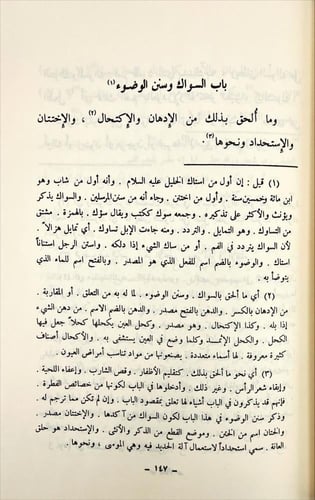 باب السواك وسنن الوضوء (١)
وما ألحق بذلك من الإدهان والإكتحال (٢) ، والإختتان
والإستحداد ونحوها (٣) .
(١) قيل : إن أول من استاك الخليل عليه السلام . وأنه أول من شاب وهو
ابن مائة وخمسين سنة . وأول من اختتن . وجاء أنه من سنن المرسلين . والسواك يذكر
ويؤنث والأكثر على تذكيره . وجمعه سوك ككتب ويقال سؤك . بالهمزة . مشتق
من التساوك . وهو التمايل . والتردد . ومنه جاءت الإبل تساوك . أي تمايل هزالا .
لأن السواك يتردد في الفم . أو من ساك الشيء إذا دلكه . واستن الرجل استنانا
استاك . والوضوء بالضم اسم للفعل الذي هو المصدر . وبالفتح اسم للماء الذي
يتوضأ به .
(٢) أي ما ألحق بالسواك . وسنن الوضوء . لما له به من التعلق . أو المقاربة .
من الإدهان بالكسر . والإدهان بالفتح مصدر . والدهن بالضم الاسم . من دهن الشيء
إذا بله . وكذا الإكتحال . وهو مصدر . وكحل العين يكحلها كحلا جعل فيها
الكحل . والكحل الإثمد وكلما وضع في العين يستشفى به . والأكحال أصناف
كثيرة معروفة . لها أسماء متعددة . يصنعونها من مواد تناسب أمراض العيون .
(٣) أي نحو ما ألحق بذلك . كتقليم الأظفار . وقص الشارب . وإعفاء اللحية .
وإبقاء شعر الرأس . وغير ذلك . وأدخلوها في الباب لكونها من خصائص الفطرة .
فإنهم قد يذكرون في الباب أشياء لها تعلق بمقصود الباب . وإن لم تكن مما ترجم له .
وذكر سنن الوضوء في هذا الباب لكون السواك من آكدها . والإختتان مصدر .
والختان اسم من الختن . وموضع القطع من الذكر والأنثى . والإستحداد هو حلق
العانة . سمي استحدادا لاستعمال آلة الحديد فيه وهي الموسى ، ونحوها .
– ١٤٧ –